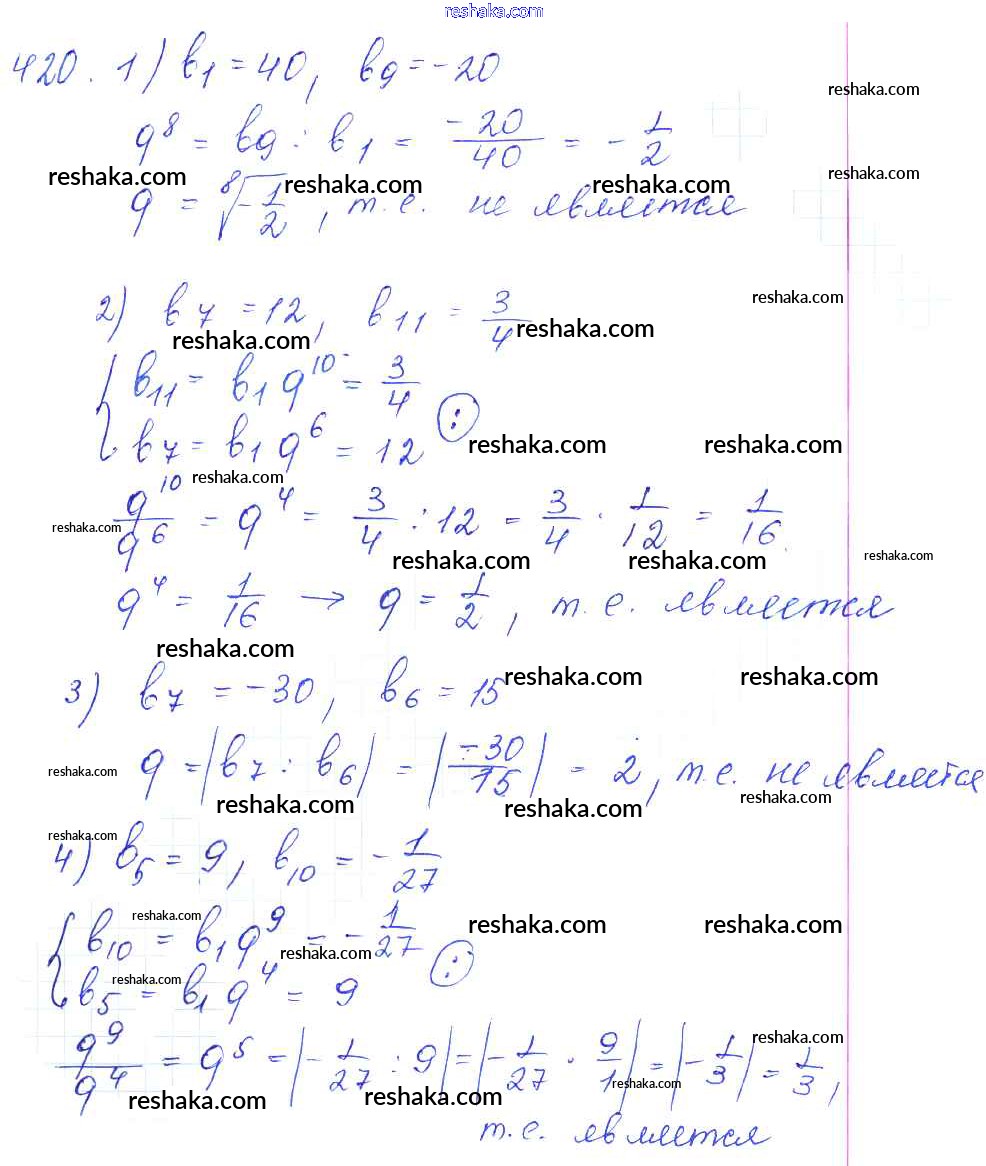 reshaka.com
420. 1) b₁ = 40, b₉ = -20
reshaka.com
q⁸ = b₉ : b₁ = -20/40 = -1/2
reshaka.com reshaka.com reshaka.com reshaka.com
q = ⁸√(-1/2), т.е. не является
2) b₇ = 12, b₁₁ = 3/4
reshaka.com
reshaka.com reshaka.com
{ b₁₁ = b₁ q¹⁰ = 3/4
b₇ = b₁ q⁶ = 12 (:)
reshaka.com reshaka.com
reshaka.com
q¹⁰/q⁶ = q⁴ = 3/4 : 12 = 3/4 · 1/12 = 1/16
reshaka.com
reshaka.com reshaka.com reshaka.com
q⁴ = 1/16 → q = 1/2, т.е. является
reshaka.com
3) b₇ = -30, b₆ = 15
reshaka.com reshaka.com
q = |b₇ : b₆| = |-30/15| = 2, т.е. не является
reshaka.com reshaka.com
reshaka.com reshaka.com
reshaka.com
4) b₅ = 9, b₁₀ = -1/27
reshaka.com
{ b₁₀ = b₁ q⁹ = -1/27
reshaka.com reshaka.com reshaka.com
b₅ = b₁ q⁴ = 9 (:)
reshaka.com
q⁹/q⁴ = q⁵ = |-1/27 : 9| = |-1/27 · 9/1| = |-1/3| = 1/3,
reshaka.com
reshaka.com reshaka.com reshaka.com
т.е. является